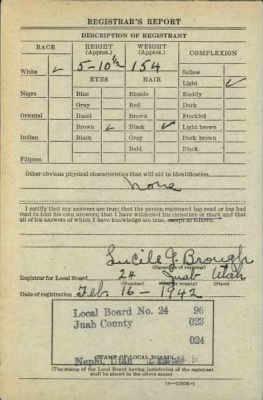 REGISTRAR'S REPORT
DESCRIPTION OF REGISTRANT
RACE HEIGHT (Approx.) WEIGHT (Approx.) COMPLEXION
White ✓ 5-10½ 154 Sallow
EYES HAIR Light ✓
Negro Blue Blonde Ruddy
Gray Red Dark
Oriental Hazel Brown Freckled
Brown ✓ Black ✓ Light brown
Indian Black Gray Dark brown
Bald Black
Filipino
Other obvious physical characteristics that will aid in identification
None
I certify that my answers are true; that the person registered has read or has had
read to him his own answers; that I have witnessed his signature or mark and that
all of his answers of which I have knowledge are true, except as follows:
Lucile J. Brough
(Signature of registrar)
Registrar for Local Board 24 Juab Utah
(Number) (State)
Date of registration Feb. 16 - 1942
Local Board No. 24 96
Juab County 023
024
Nephi, Utah
(STAMP OF LOCAL BOARD)
(The stamp of the Local Board having jurisdiction of the registrant
shall be placed in the above space)